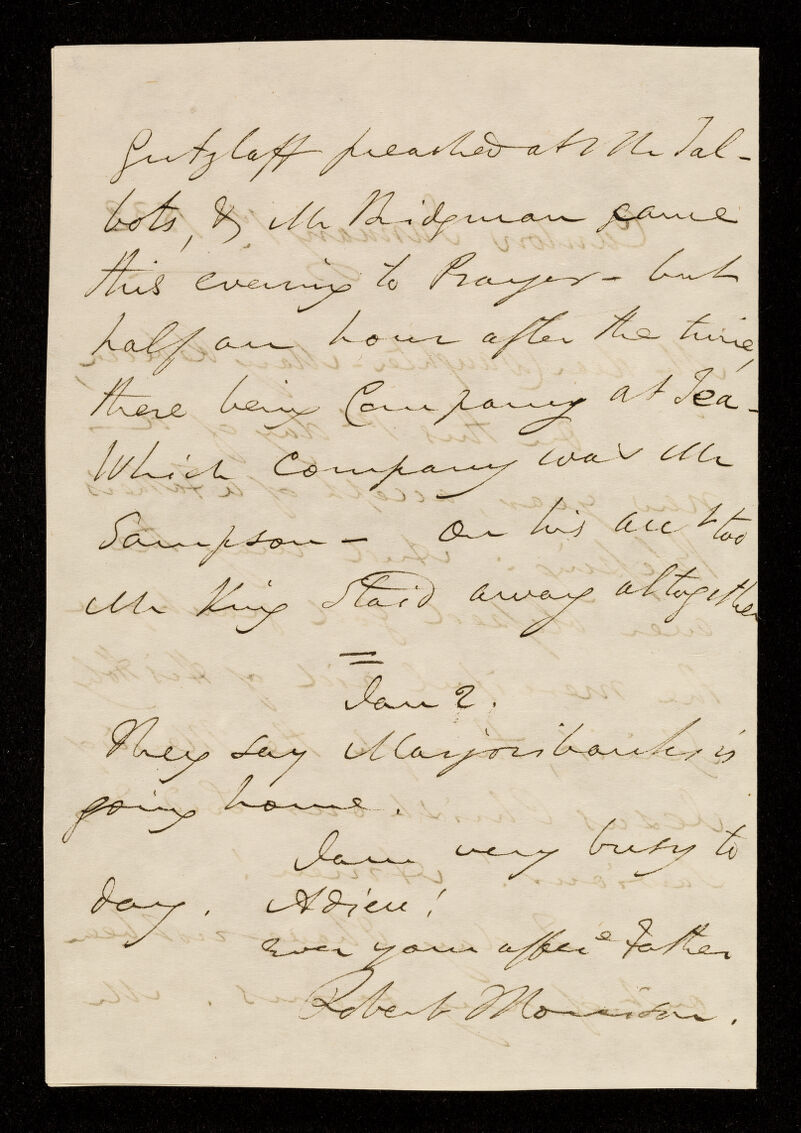 Gutzlaff preached at Mr Tal-
bots, & Mr Bridgman came
this evening to Prayer - but
half an hour after the time,
there being Company at Tea -
Which company was Mr
Sampson - On his acct too
Mr King Staid away altogether
Jan 2.
They say Marjoribanks is
going home.
I am very busy to
day. Adieu!
Ever your affece Father
Robert Morrison.